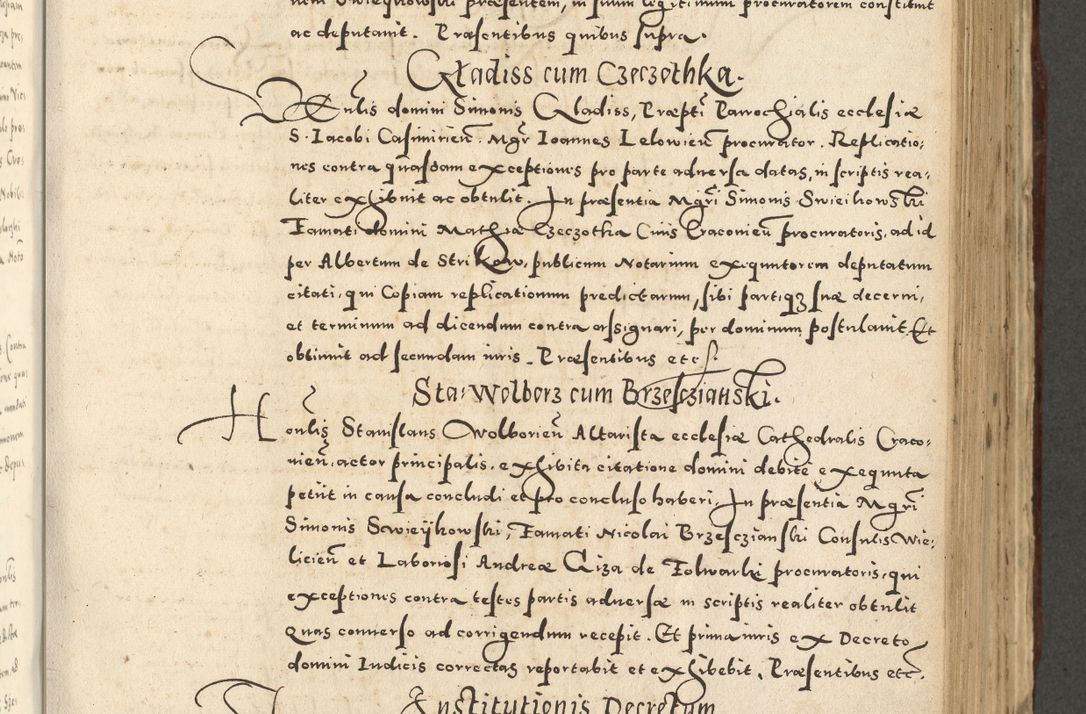 nem Swieijkowski præsentem, in suum legittimum procuratorem constituit
ac deputauit. Præsentibus quibus supra.
Gładiss cum Czeczothka.
Venlis domini Simonis Gladiss, Præpti Parrochialis ecclesiæ
S. Iacobi Casimirien. Mgr Ioannes Lelowien procurator. Replicatio-
nes contra quasdam exceptiones pro parte aduersa datas, in scriptis rea-
liter exhibuit ac obtulit. In præsentia Mgri Simonis Swieikowski
Famati domini Mathiæ Czeczotka Ciuis Cracouien procuratoris, ad id
per Albertum de Strikow, publicum Notarium exequutorem deputatum
citati, qui Copiam replicationum predictarum, sibi partiq3 suæ decerni,
et terminum ad dicendum contra assignari, per dominum postulauit. Et
obtinuit ad secundam iuris. Præsentibus etc.
Sta: Wolborz cum Brzesczianski.
Honlis Stanislaus Wolborien Altarista ecclesiæ Cathedralis Craco-
uien, actor principalis, exhibita citatione domini debite exequuta
petiit in causa concludi et pro concluso haberi. In præsentia Mgri
Simonis Swieijkowski, Famati Nicolai Brzesczianski Consulis Wie-
licien et Laboriosi Andreæ Giza de Folwarki procuratoris, qui
exceptiones contra testes partis aduersæ in scriptis realiter obtulit
Quas conuerso ad corrigendum recepit. Et prima iuris ex Decreto
domini Iudicis correctas reportabit et exhibebit. Præsentibus etc.
Institutionis Decretum